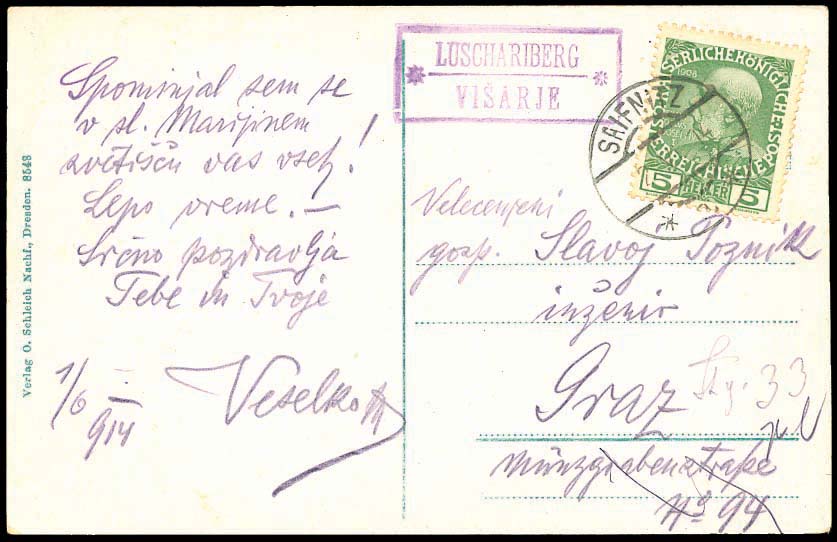 Spominjal sem se
v sl. Marijinem
svetišču vas vseh!
Lepo vreme. —
Srčno pozdravlja
Tebe in Tvoje
1/6 914
Veselko
Verlag O. Schleich Nachf., Dresden. 8543
LUSCHARIBERG
VIŠARJE
SAIFNITZ
1908
5 HELLER 5
Velecenjeni
gosp. Slavoj
inženir
Graz
Münzgrabenstraße
No 94